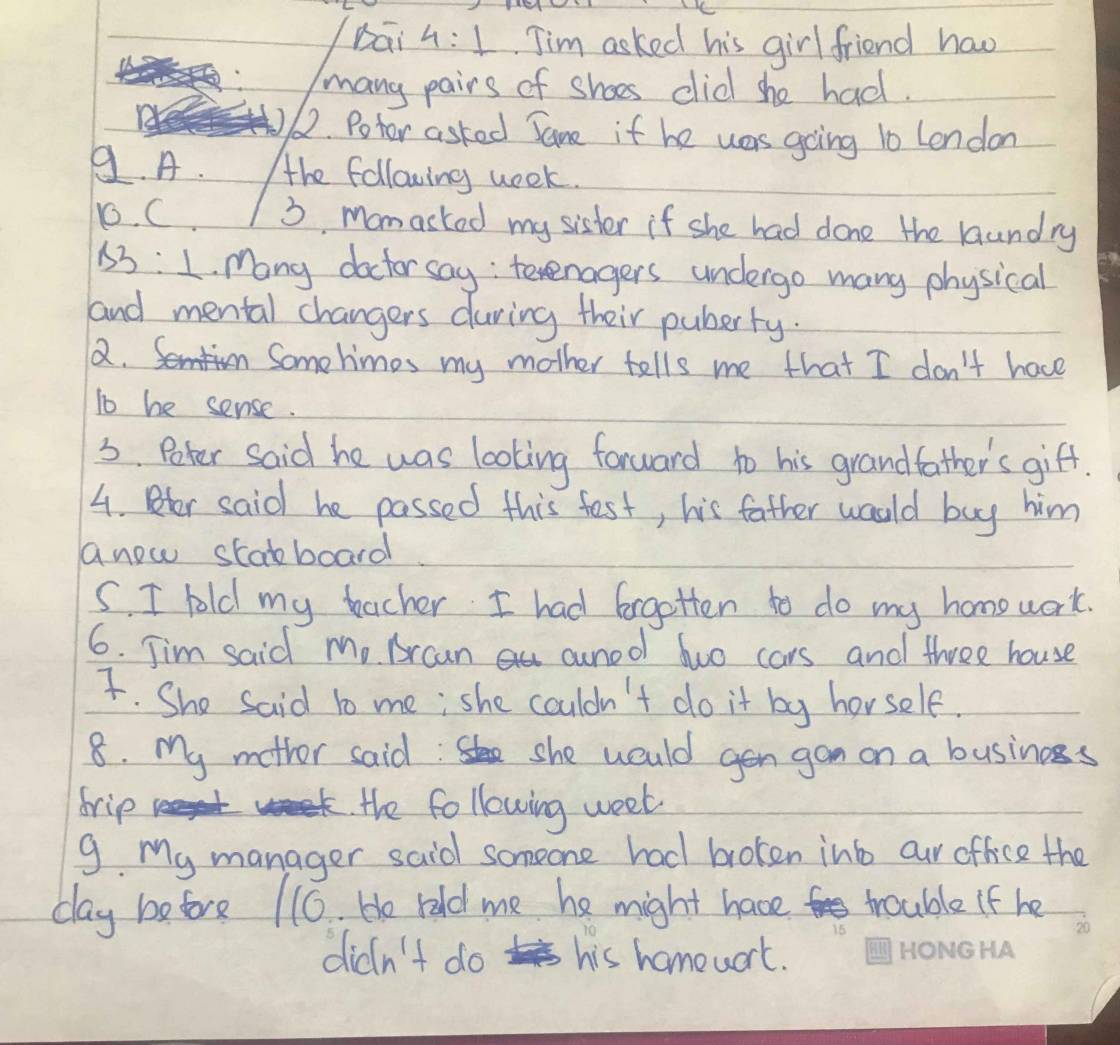 Bài 4 : 1. Tim asked his girl friend how
many pairs of shoes did she had.
2. Peter asked Jane if he was going to London
the following week.
3. Mom asked my sister if she had done the laundry
9. A.
10. C.
B3 : 1. Many doctor say : teenagers undergo many physical
and mental changers during their puberty.
2. Sometimes my mother tells me that I don't have
to be sense.
3. Peter said he was looking forward to his grandfather's gift.
4. Peter said he passed this test, his father would buy him
a new skateboard
5. I told my teacher I had forgotten to do my home work.
6. Tim said Mr. Brown owned two cars and three house
7. She said to me ; she couldn't do it by her self.
8. My mother said : she would gon on a business
trip the following week.
9. My manager said someone had broken into our office the
day before //10. He told me he might have trouble if he
didn't do his homework.
5 10 15 20
HONG HA